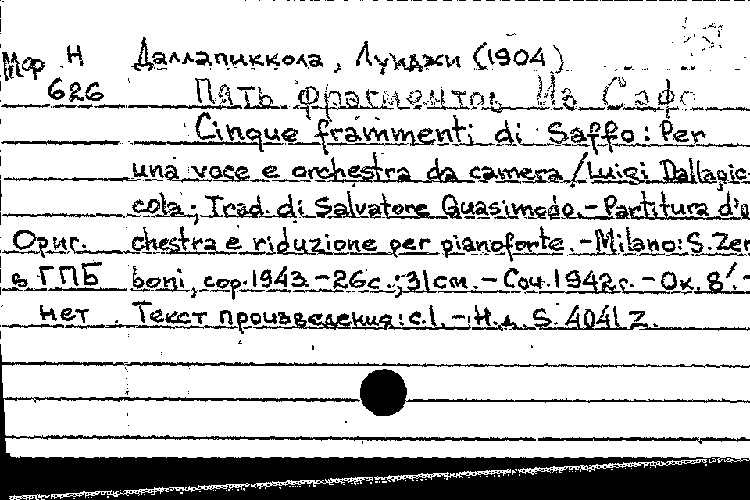 Мор Н Даллапиккола, Луиджи (1904)
626 Пять фрагментов Из Сафо
Cinque frammenti di Saffo: Per
una voce e orchestra da camera / Luigi Dallapic-
cola; Trad. di Salvatore Quasimodo. - Partitura d'o
Ориг. chestra e riduzione per pianoforte. - Milano: S. Zer
в ГПБ boni, cop. 1943. - 26с.; 31см. - Соч. 1942г. - Ок. 8'. -
нет Текст произведения: с.1. - Н.д. S. 4041 Z.